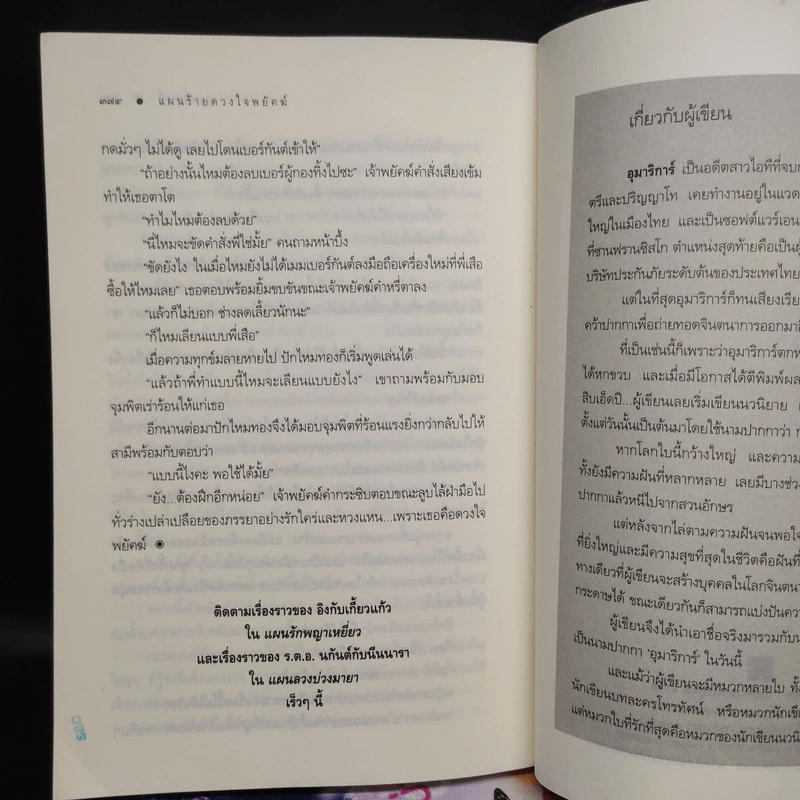 ๓๗๔ ● แผนร้ายดวงใจพยัคฆ์
กดมั่วๆ ไม่ได้ดู เลยไปโดนเบอร์กันต์เข้าให้"
"ถ้าอย่างนั้นไหมต้องลบเบอร์ผู้กองทิ้งไปซะ" เจ้าพยัคฆ์คำสั่งเสียงเข้ม
ทำให้เธอตาโต
"ทำไมไหมต้องลบด้วย"
"นี่ไหมจะขัดคำสั่งพี่ใช่มั้ย" คนถามหน้าบึ้ง
"ขัดยังไง ในเมื่อไหมยังไม่ได้เมมเบอร์กันต์ลงมือถือเครื่องใหม่ที่พี่เสือ
ซื้อให้ไหมเลย" เธอตอบพร้อมยิ้มขบขันขณะเจ้าพยัคฆ์คำหรี่ตาลง
"แล้วก็ไม่บอก ช่างลดเลี้ยวนักนะ"
"ก็ไหมเลียนแบบพี่เสือ"
เมื่อความทุกข์มลายหายไป ปักไหมทองก็เริ่มพูดเล่นได้
"แล้วถ้าพี่ทำแบบนี้ไหมจะเลียนแบบยังไง" เขาถามพร้อมกับมอบ
จุมพิตเร่าร้อนให้แก่เธอ
อีกนานต่อมาปักไหมทองจึงได้มอบจุมพิตที่ร้อนแรงยิ่งกว่ากลับไปให้
สามีพร้อมกับตอบว่า
"แบบนี้ไงคะ พอใช้ได้มั้ย"
"ยัง...ต้องฝึกอีกหน่อย" เจ้าพยัคฆ์คำกระซิบตอบขณะลูบไล้ฝ่ามือไป
ทั่วร่างเปล่าเปลือยของภรรยาอย่างรักใคร่และหวงแหน...เพราะเธอคือดวงใจ
พยัคฆ์ ◉
ติดตามเรื่องราวของ อิงกับเกี้ยวแก้ว
ใน แผนรักพญาเหยี่ยว
และเรื่องราวของ ร.ต.อ. นกันต์กับนีนนารา
ใน แผนลวงบ่วงมายา
เร็วๆ นี้
เกี่ยวกับผู้เขียน
อุมาริการ์ เป็นอดีตสาวไอทีที่จบ
ตรีและปริญญาโท เคยทำงานอยู่ในแวด
ใหญ่ในเมืองไทย และเป็นซอฟต์แวร์เอน
ที่ซานฟรานซิสโก ตำแหน่งสุดท้ายคือเป็นผู้
บริษัทประกันภัยระดับต้นของประเทศไทย
แต่ในที่สุดอุมาริการ์ก็ทนเสียงเรีย
คว้าปากกาเพื่อถ่ายทอดจินตนาการออกมา
ที่เป็นเช่นนี้ก็เพราะว่าอุมาริการ์ตกห
ได้หกขวบ และเมื่อมีโอกาสได้ตีพิมพ์ผล
สิบเอ็ดปี...ผู้เขียนเลยเริ่มเขียนนวนิยาย
ตั้งแต่วันนั้นเป็นต้นมาโดยใช้นามปากกาว่า
หากโลกใบนี้กว้างใหญ่ และความ
ทั้งยังมีความฝันที่หลากหลาย เลยมีบางช่วง
ปากกาแล้วหนีไปจากสวนอักษร
แต่หลังจากไล่ตามความฝันจนพอใจ
ที่ยิ่งใหญ่และมีความสุขที่สุดในชีวิตคือฝันที่
ทางเดียวที่ผู้เขียนจะสร้างบุคคลในโลกจินตน
กระดาษได้ ขณะเดียวกันก็สามารถแบ่งปันควา
ผู้เขียนจึงได้นำเอาชื่อจริงมารวมกับน
เป็นนามปากกา 'อุมาริการ์' ในวันนี้
และแม้ว่าผู้เขียนจะมีหมวกหลายใบ ทั้
นักเขียนบทละครโทรทัศน์ หรือหมวกนักเขีย
แต่หมวกใบที่รักที่สุดคือหมวกของนักเขียนนวนิ